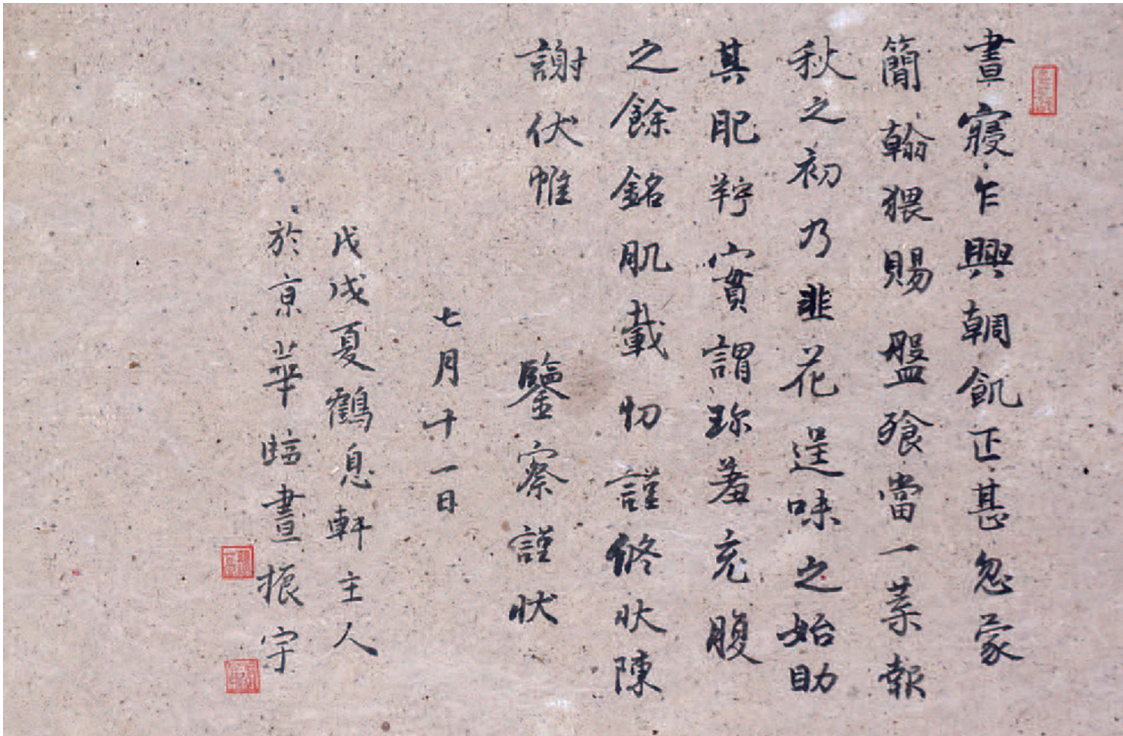 晝寢乍興朝飢正甚忽蒙
簡翰猥賜盤飧當一葉報
秋之初乃韭花逞味之始助
其肥羜實謂珍羞充腹
之餘銘肌載切謹修狀陳
謝伏惟 鑒察謹狀
七月十一日
戊戌夏鶴息軒主人
於京華臨晝振宇